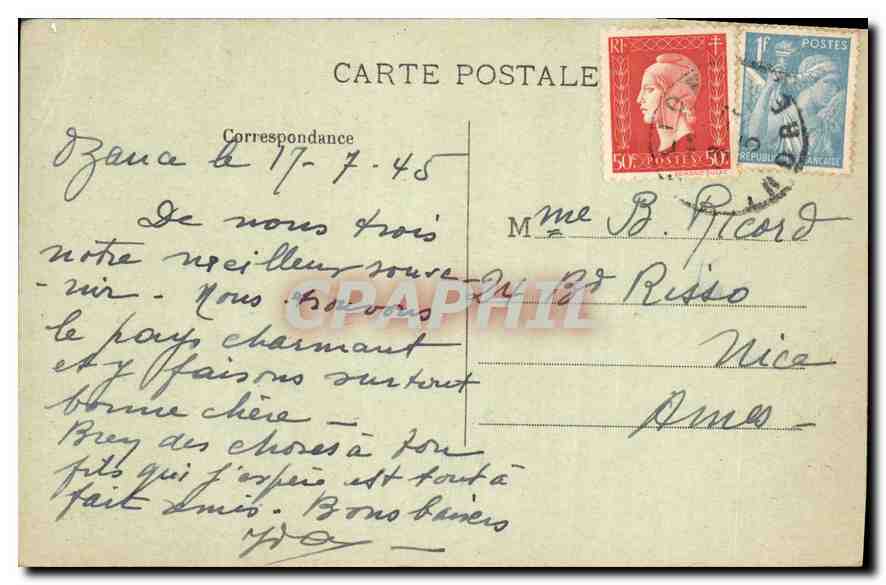 CARTE POSTALE
Correspondance
le 17-7.45
De nous trois
notre meilleur souve-
-nir. Nous trouvons
le pays charmant
et y faisons surtout
bonne chère -
Brey des choses à ton
fils qui j'espère est tout à
fait remis. Bons baisers
Yda
Mme B. Ricord
24 Bd Risso
Nice
A mes
RF
50c POSTES 50c
1F POSTES
RÉPUBLIQUE FRANÇAISE
GRAPHIL